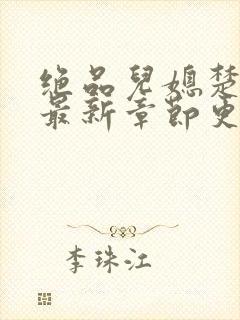 绝品儿媳楚
最新章节更
李珠江